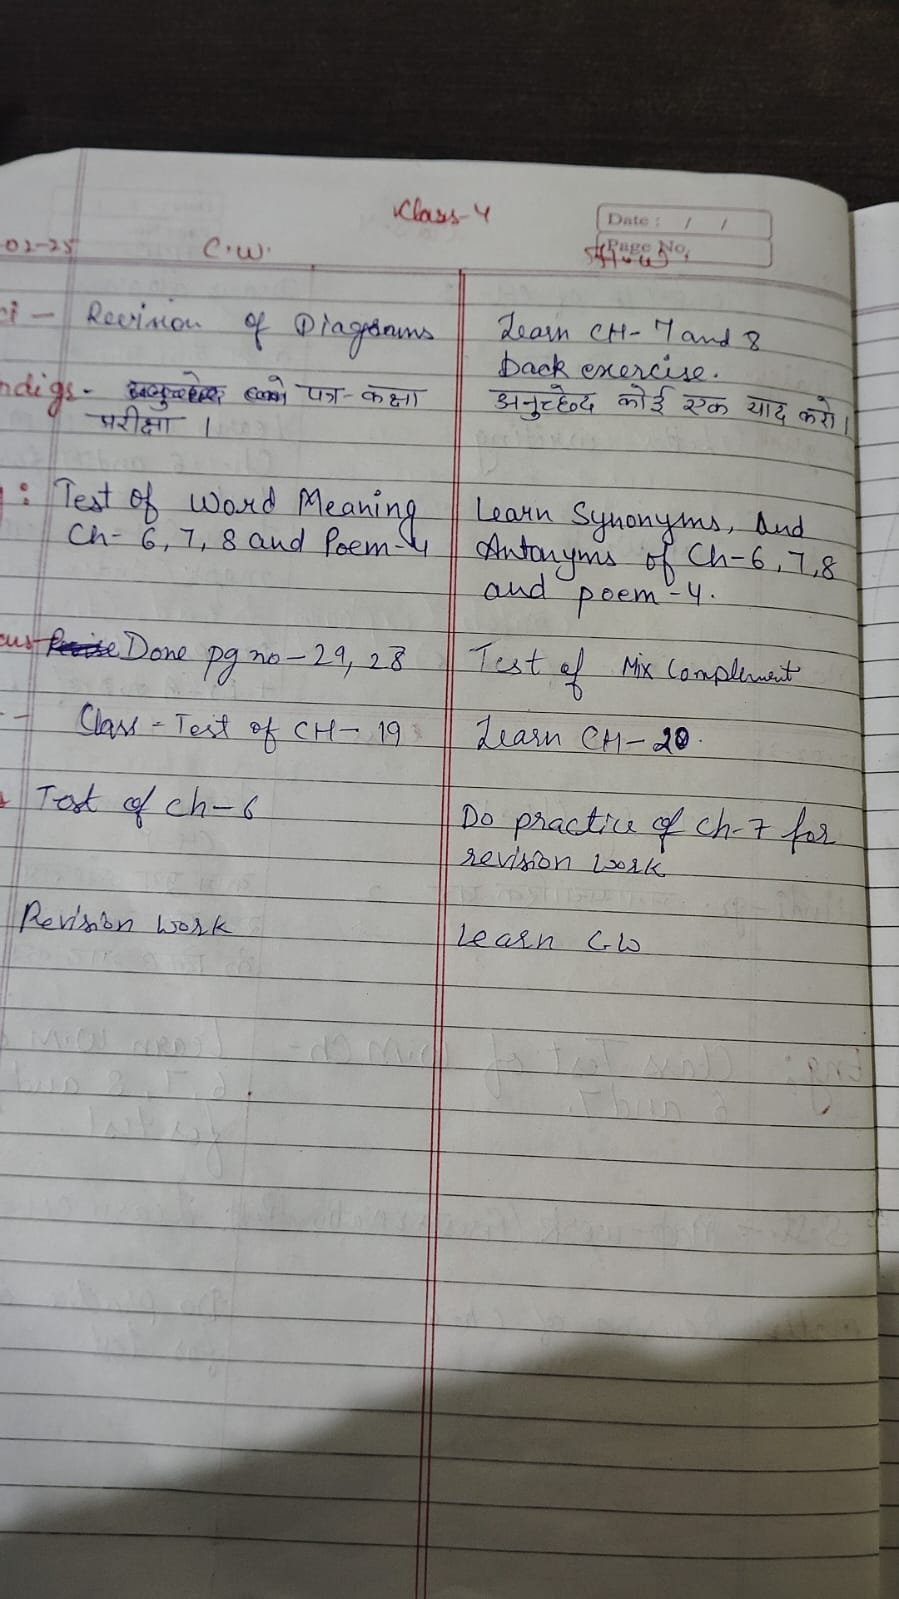 Class-4
Date : / /
Page No.
-02-25 C.W. H.W
ci - Revision of Diagrams Learn CH- 7 and 8
back exercise.
ndigs- पत्र-कक्षा अनुच्छेद कोई एक याद करो।
परीक्षा ।
: Test of Word Meaning Learn Synonyms, And
Ch- 6, 7, 8 and Poem-4 Antonyms of Ch-6, 7, 8
and poem-4.
cus- Done pg no-29, 28 Test of Mix Complement
- Class-Test of CH-19 Learn CH-20.
Test of ch-6 Do practice of ch-7 for
revision work
Revision work Learn C.W